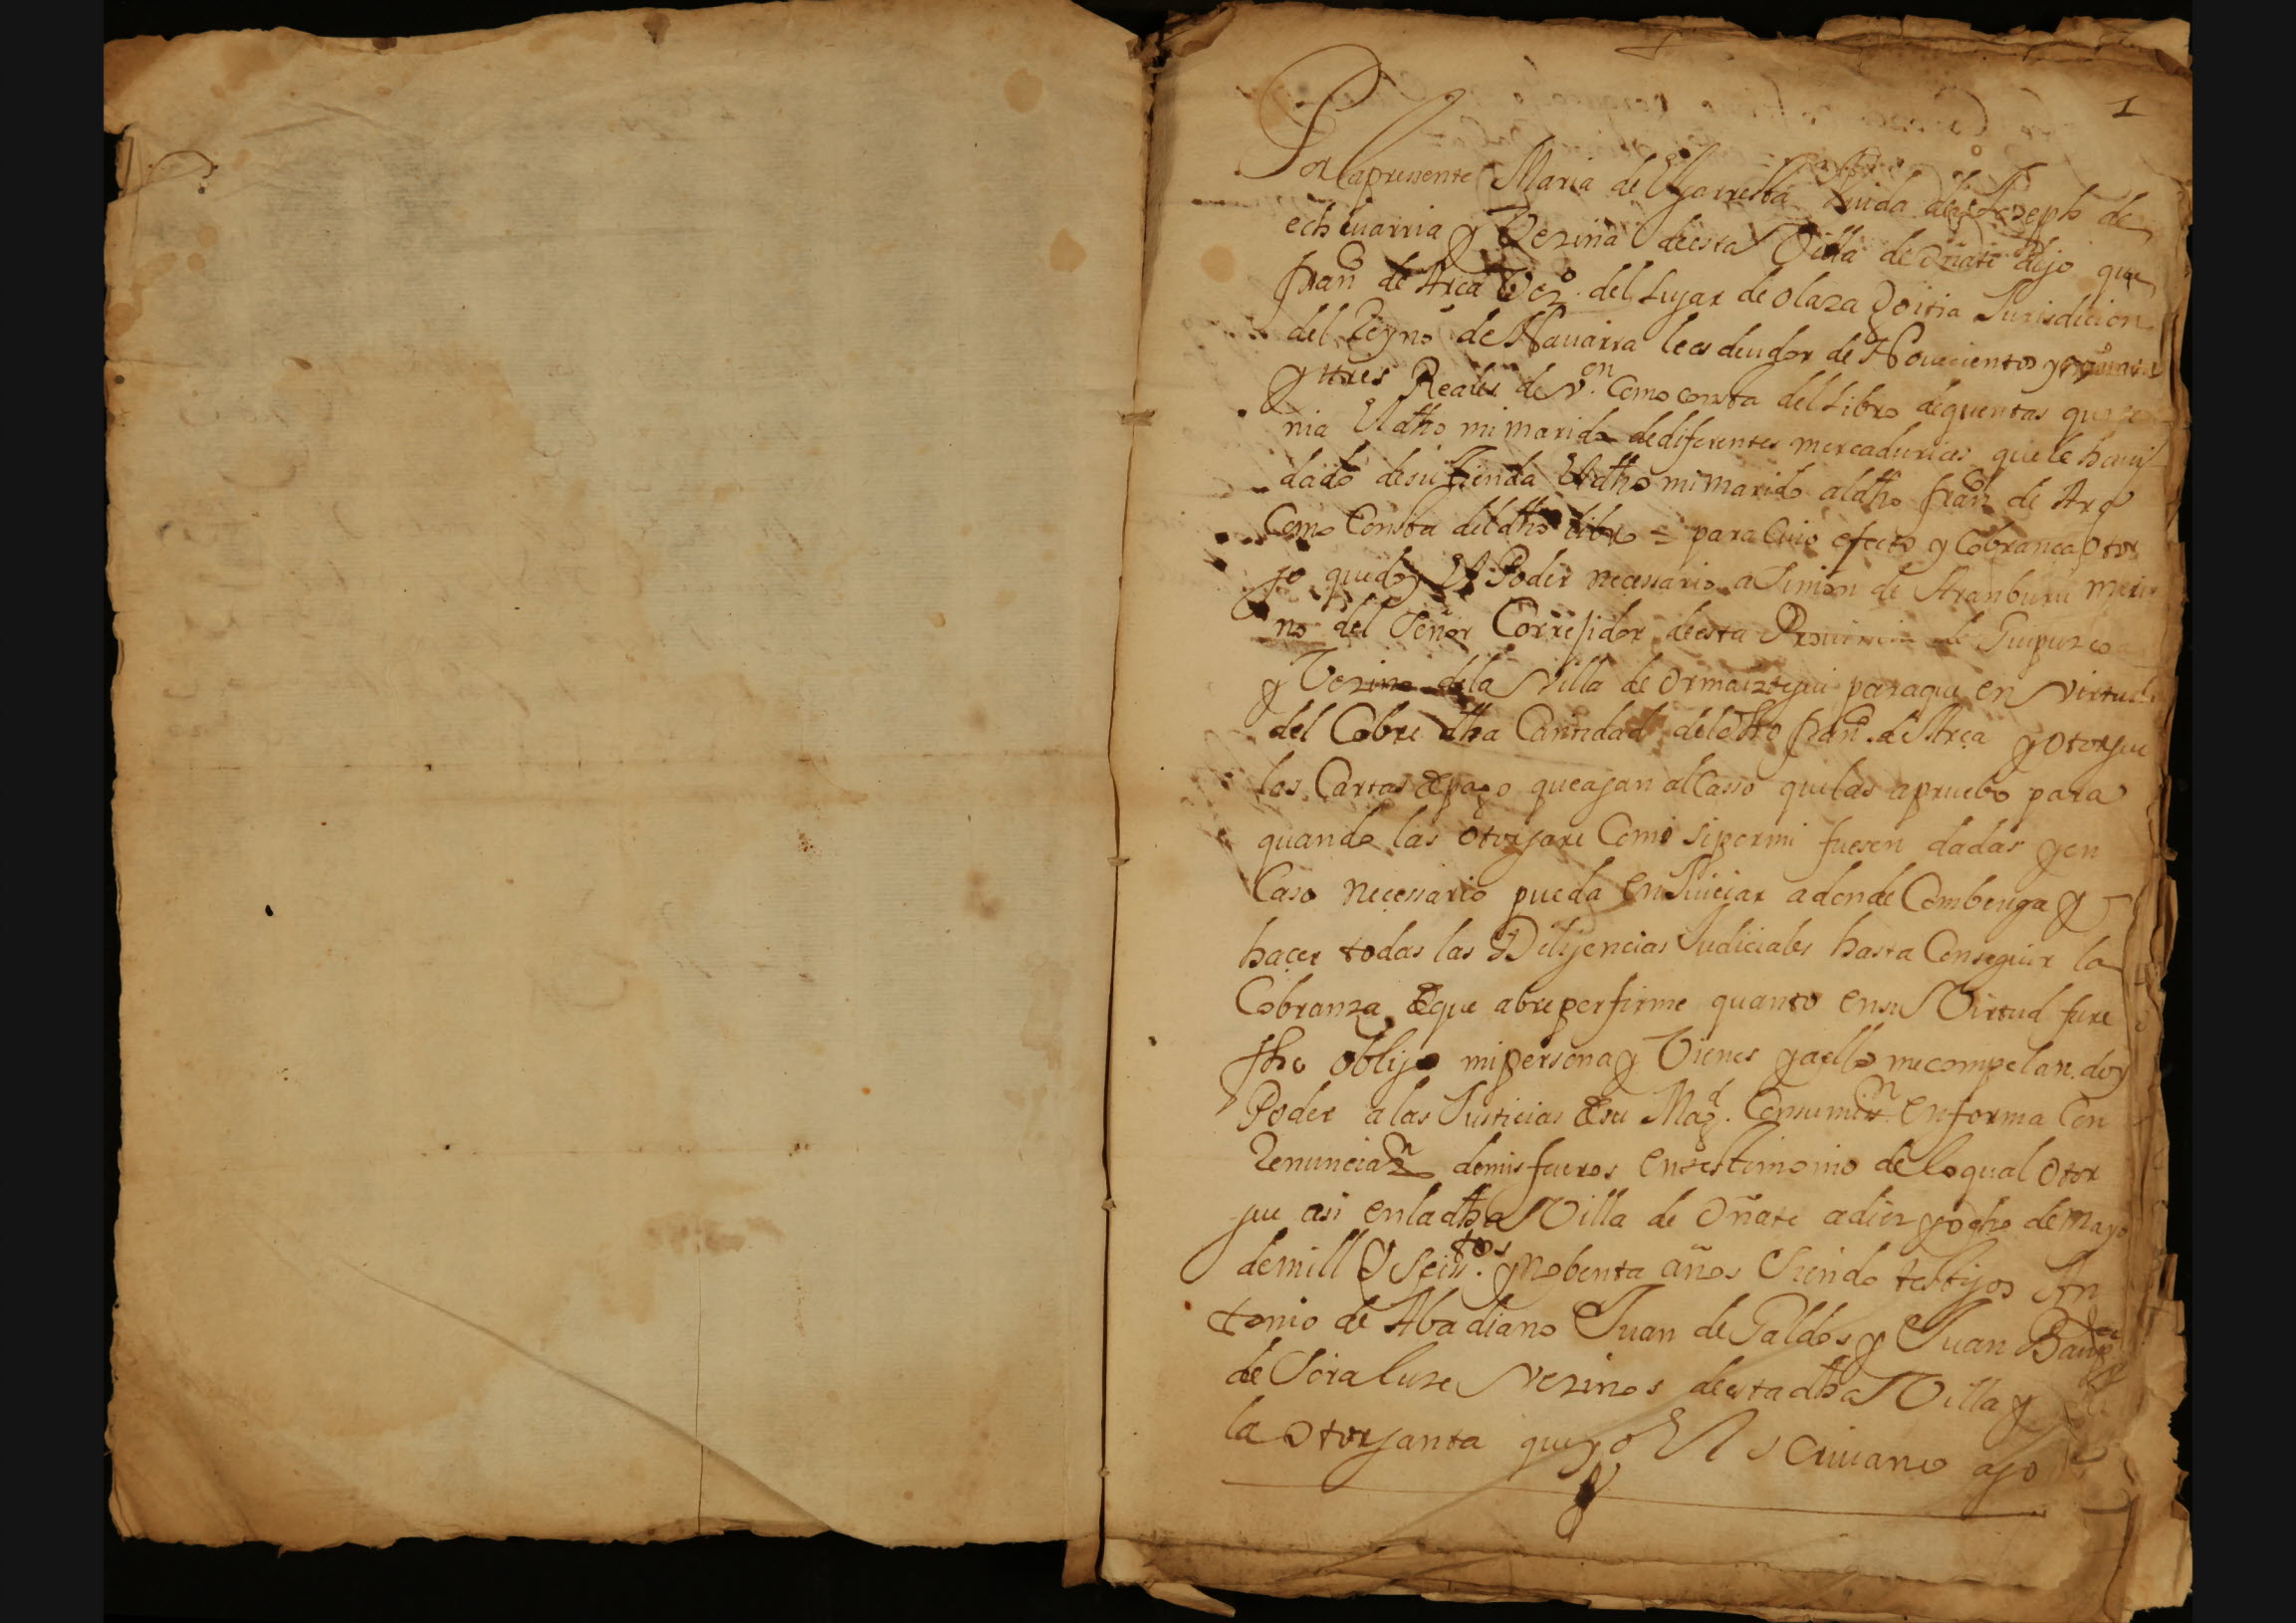 1
Por la pressente Maria de Ugarresta Viuda de Joseph de
echeuarria y Vezina deesta Villa de oñate digo que
fran^co de Arca Vez^o. del Lugar de olaza Goitia Jurisdicion
del Reyno de Nauarra le es deudor de Noueciento y
y tres Reales de v^on. Como consta del Libro de quentas que te
nia El dho mi marido de diferentes mercadurias que le hauia
dado de su tienda El dho mi marido al dho fran^co de Arca
Como Consta del dho libro = para Cuio efecto y Cobrança Otor
go que doy El Poder necessario a Simon de Aranburu meri
no del Señor Correjidor deesta Prouincia de Guipuzcoa
y Vezino de la Villa de Ormaiztegui para que en virtud
del Cobre dha Cantidad del dho fran^co. de Arca y otorgue
las Cartas de pago que ajan al Casso que las apruebo para
quando las otorgare Como si por mi fuesen dadas y en
Caso necessario pueda en Juiciar a donde Combenga y
haçer todas las Dilijencias Judiciales hasta Conseguir la
Cobranza de que abre por firme quanto en su Virtud fure
fho obligo mi persona y Vienes y a ello me compelan. doy
Poder a las Justicias de su Mag^d. Con sumi^on en forma Con
Renuncia^on de mis fueros en testimonio de lo qual otor
gue asi en la dha Villa de Oñate a diez y ocho de Mayo
de mill y seiss^tos. y Nobenta años Siendo testigos An
tonio de Abadiano Juan de Galdos y Juan Baup^ta
de Soraluze vezinos de esta dha Villa y
la otorganta que yo El scriuano